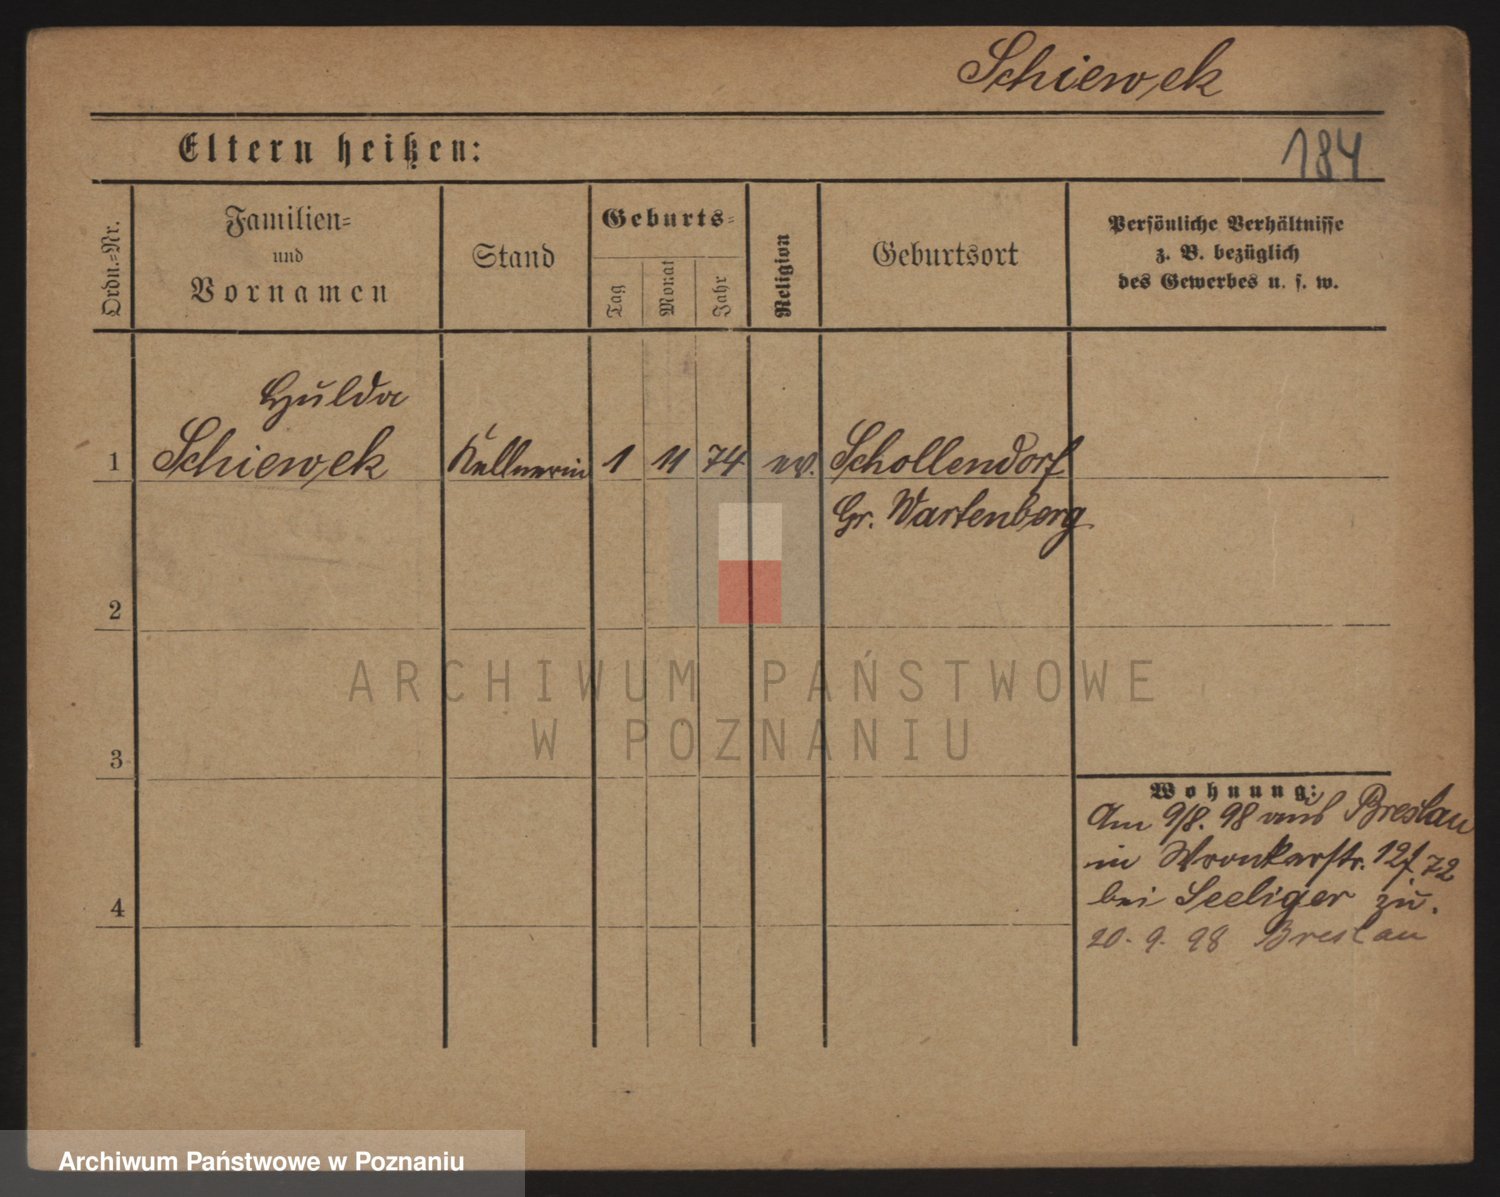 Schiewek
Eltern heißen:
184
Ordn.=Nr.
Familien=
und
Vornamen
Stand
Geburts=
Tag
Monat
Jahr
Religion
Geburtsort
Persönliche Verhältnisse
z. B. bezüglich
des Gewerbes u. s. w.
Hulda
1 Schiewek Kellnerin 1 11 74 ev. Schollendorf
Gr. Wartenberg
2
3
4
Wohnung:
Am 9/8. 98 aus Breslau
in Wronkerstr. 12
bei Seeliger zu.
20. 9. 98 Breslau
ARCHIWUM PAŃSTWOWE
W POZNANIU
Archiwum Państwowe w Poznaniu